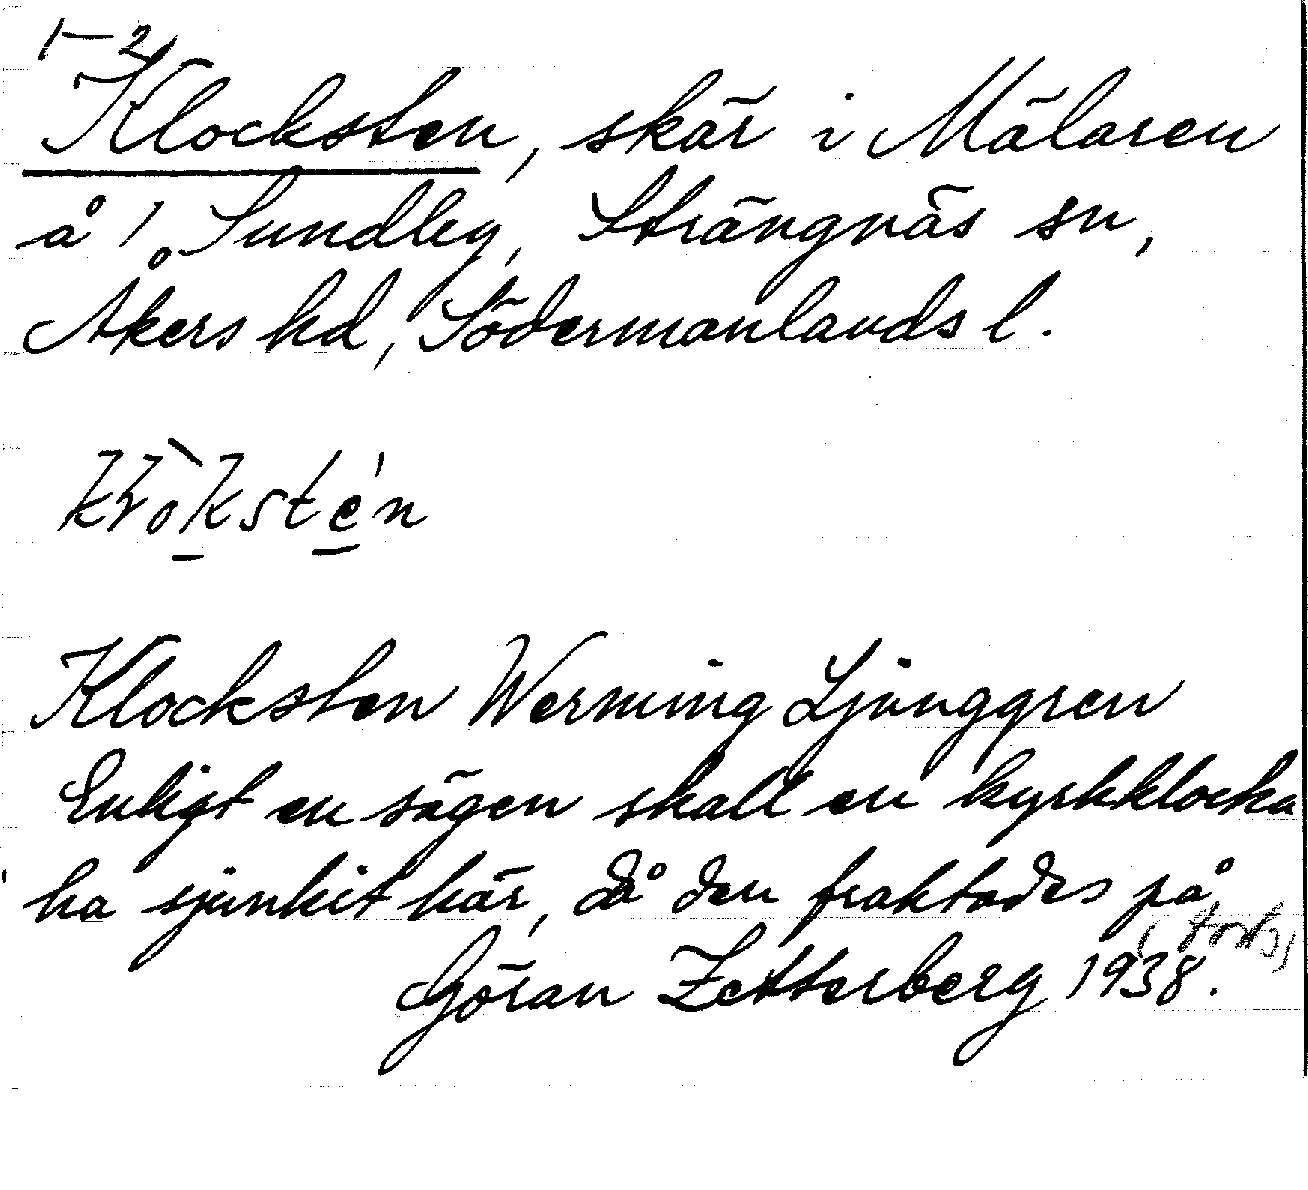 1-2
Klocksten, skär i Mälaren
å 1 Sundby, Strängnäs sn,
Åkers hd, Södermanlands l.
Klocksten Werming Ljunggren
Enligt en sägen skall en kyrkklocka
ha sjunkit här, då den fraktades på
(forts)
Göran Zetterberg 1938.